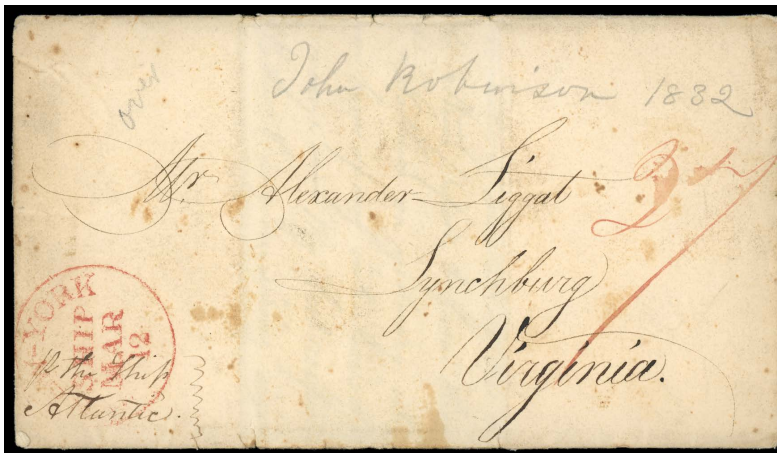 over
John Robinson 1832
Mr. Alexander Liggat
27
Lynchburg
Virginia.
-YORK
SHIP
MAR
12
the Ship
Atlantic.